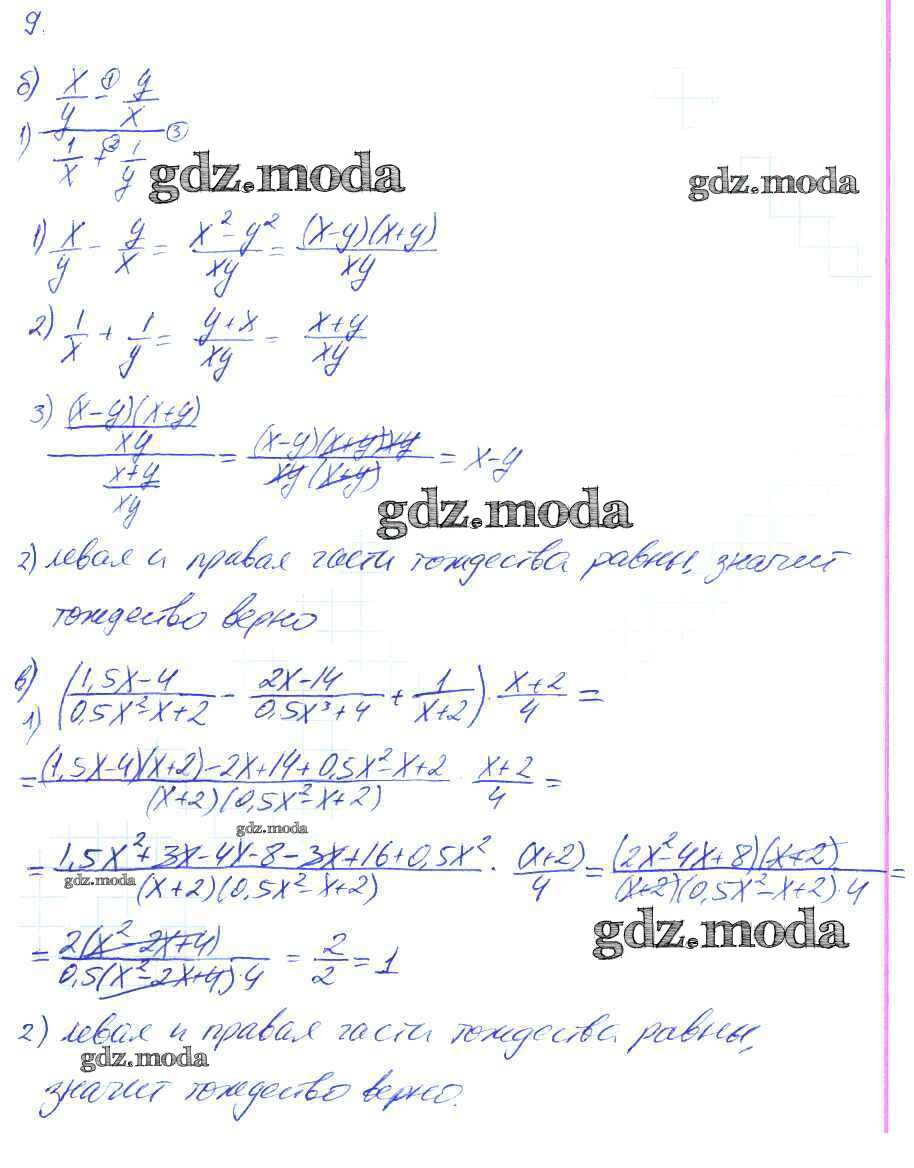 9.
б) x/y - ① y/x
1) ――― ③
1/x + ② 1/y
gdz.moda
gdz.moda
1) x/y - y/x = (x² - y²)/xy = (x-y)(x+y)/xy
2) 1/x + 1/y = (y+x)/xy = (x+y)/xy
3) ((x-y)(x+y)/xy)/((x+y)/xy) = (x-y)(x+y)xy/xy(x+y) = x-y
gdz.moda
2) левая и правая части тождества равны, значит
тождество верно
в)
1) ((1,5x-4)/(0,5x²-x+2) - (2x-14)/(0,5x³+4) + 1/(x+2)) · (x+2)/4 =
= ((1,5x-4)(x+2)-2x+14+0,5x²-x+2)/((x+2)(0,5x²-x+2)) · (x+2)/4 =
gdz.moda
= (1,5x²+3x-4x-8-3x+16+0,5x²)/((x+2)(0,5x²-x+2)) · (x+2)/4 = (2x²-4x+8)(x+2)/((x+2)(0,5x²-x+2)·4) =
gdz.moda
gdz.moda
= 2(x²-2x+4)/(0,5(x²-2x+4)·4) = 2/2 = 1
2) левая и правая части тождества равны,
gdz.moda
значит тождество верно.